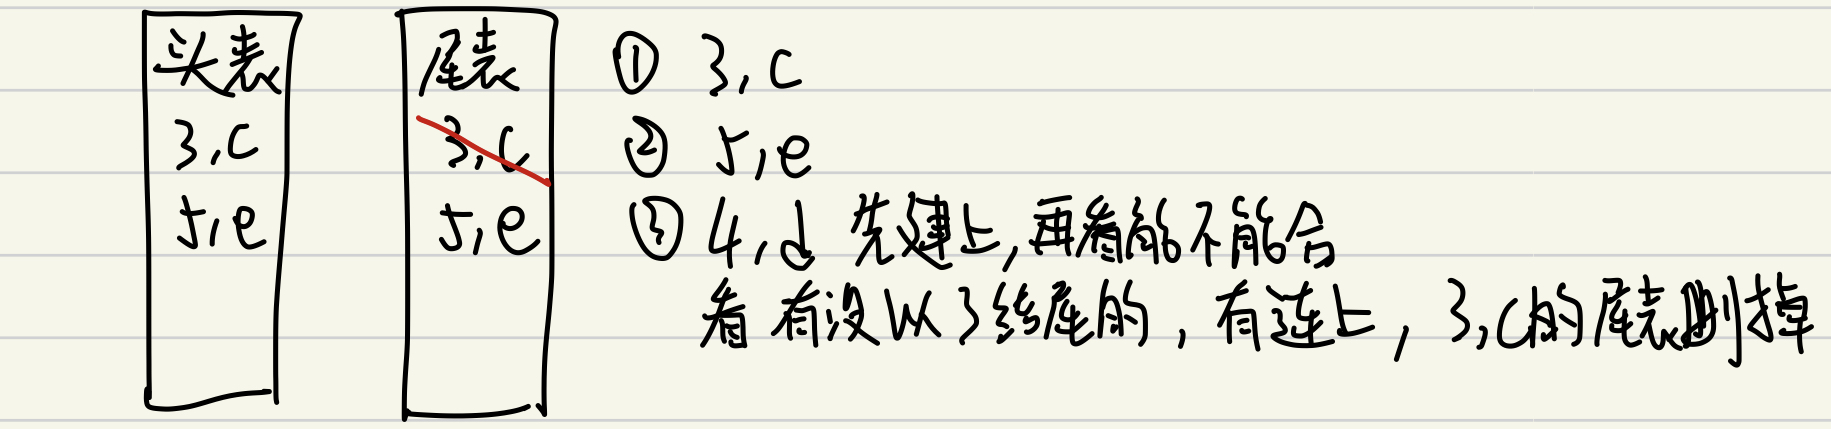 头表
3,c
5,e
尾表
3,c
5,e
① 3,c
② 5,e
③ 4,d 先建上,再看能不能合
看有没以3结尾的,有连上,3,c的尾表删掉